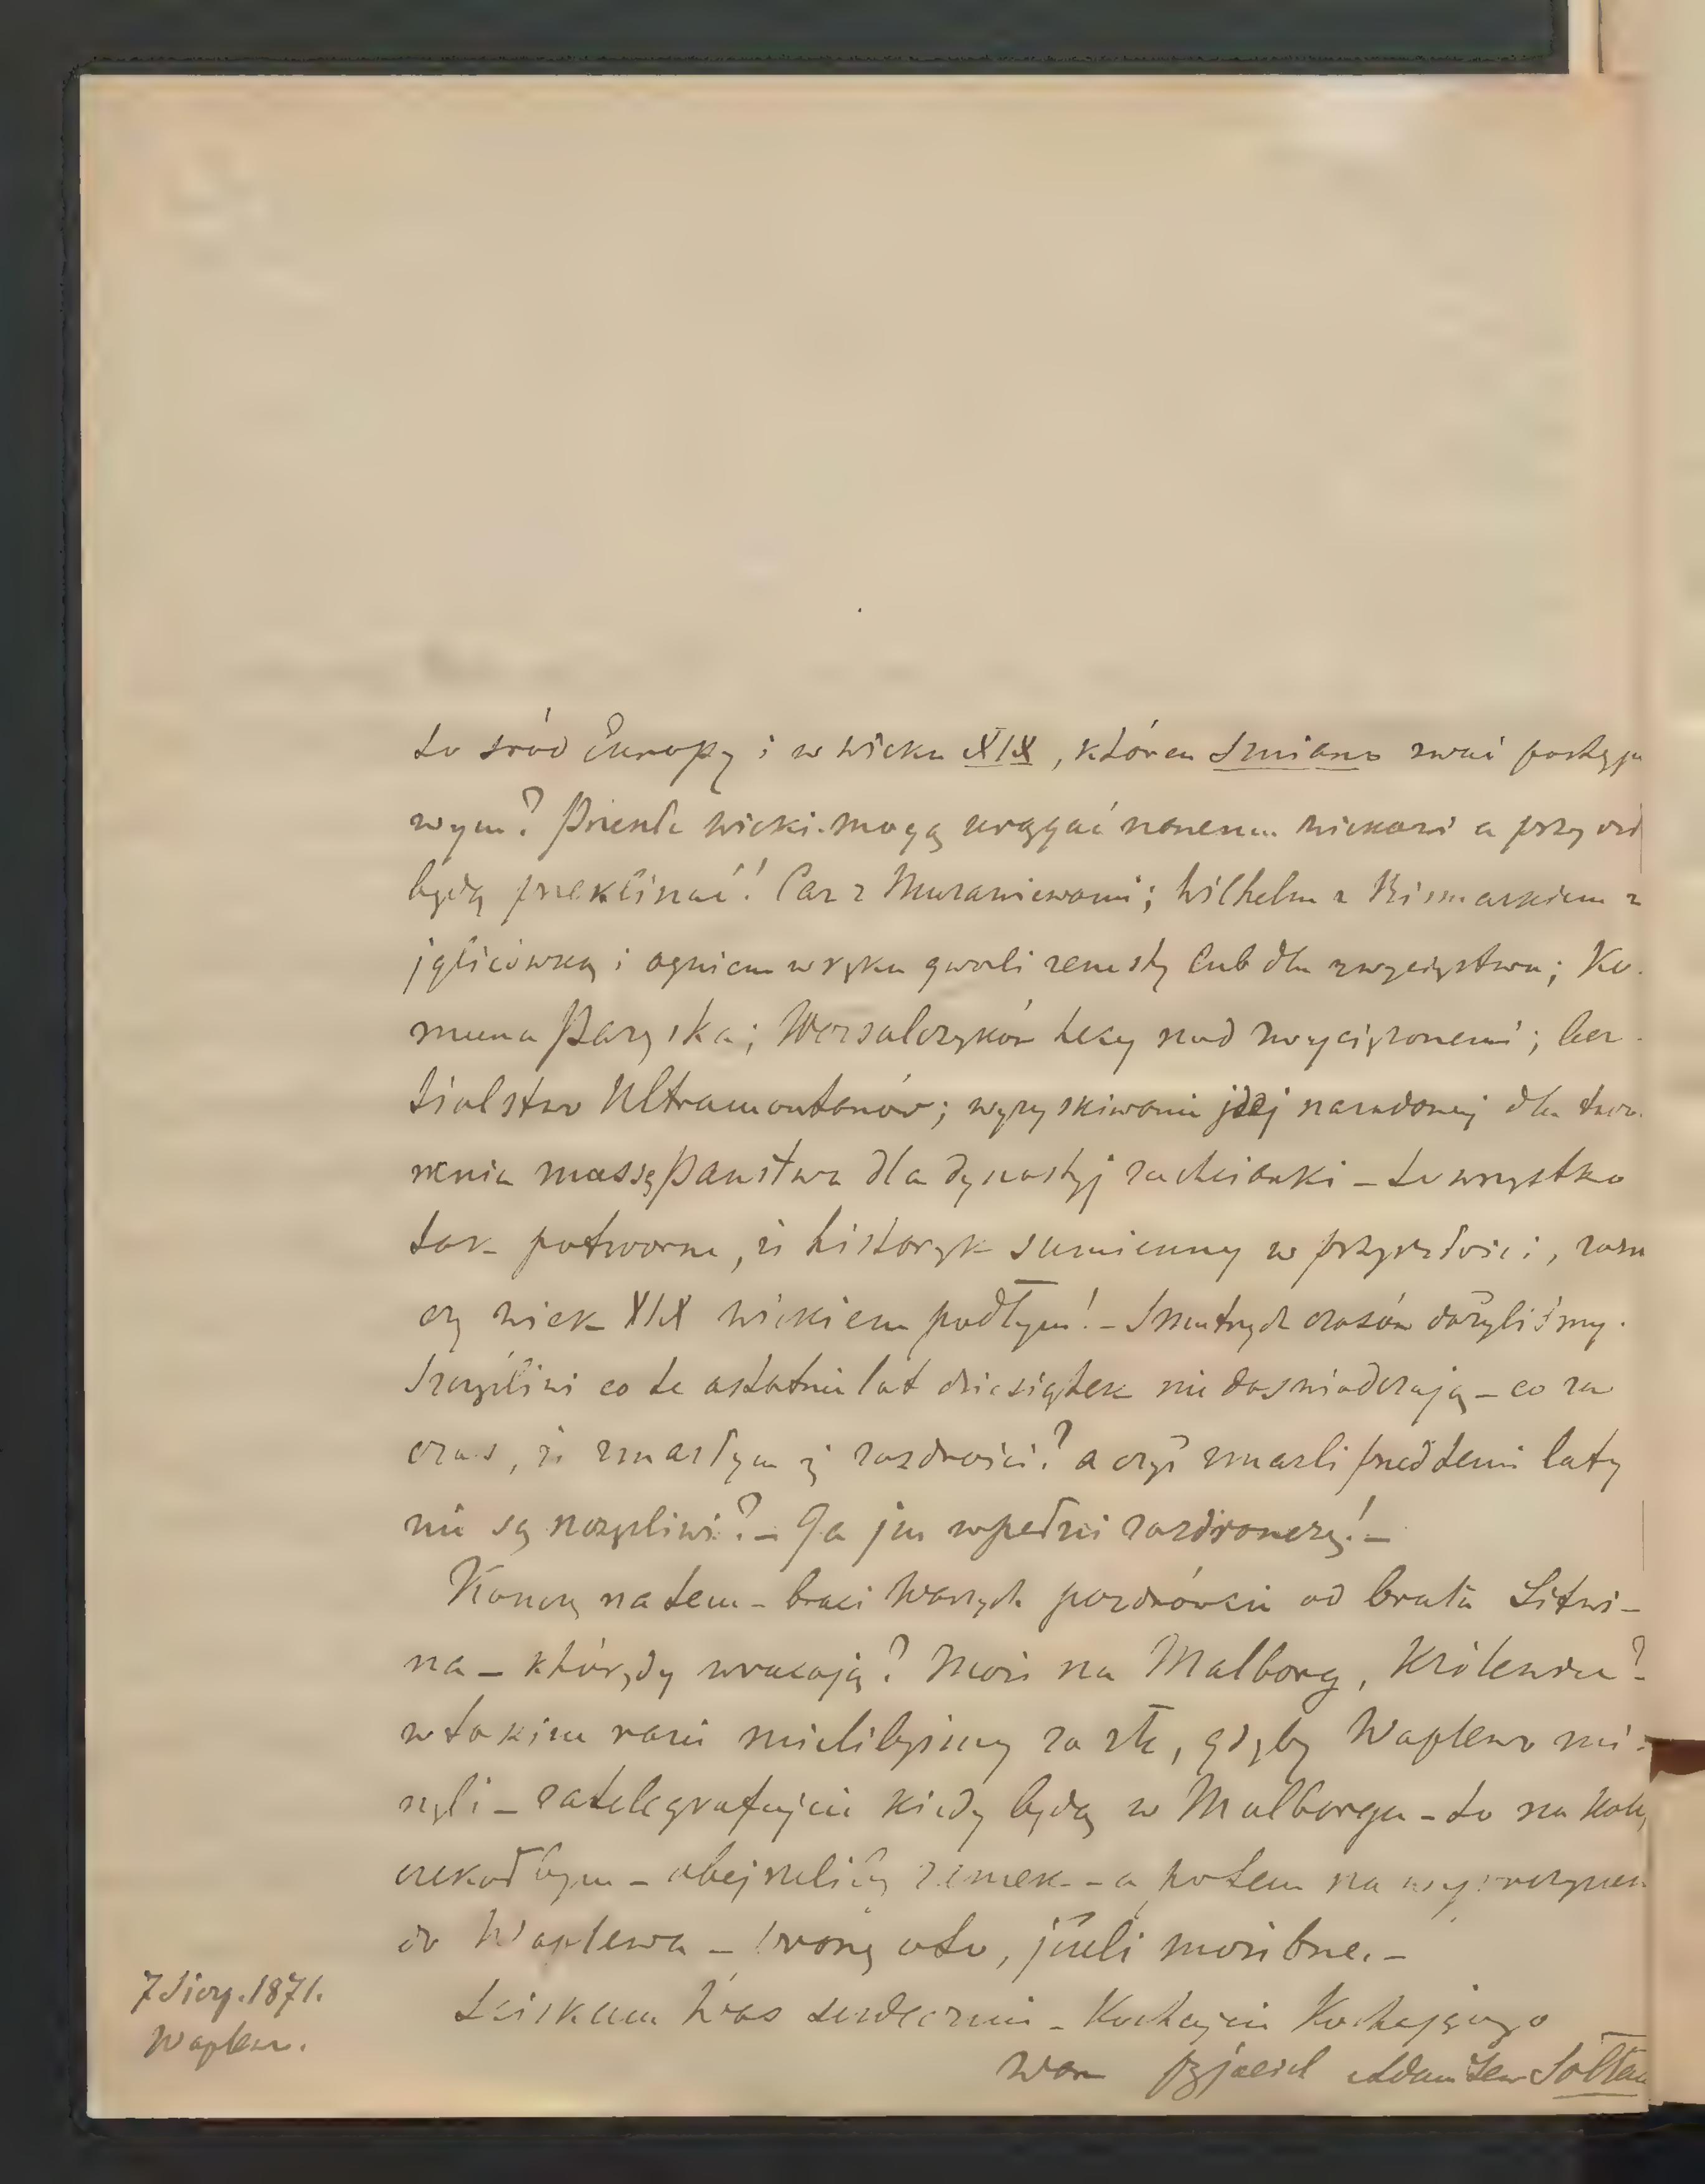 to śród Europy i w wieku XIX, któren śmiano zwać postępo
wym? Przeszłe wieki mogą urągać naszemu wiekowi a przyszł
będą przeklinać! Car z Murawiewami; Wilhelm z Bismarkiem z
iglicówką i ogniem w ręku gwoli zemsty lub dla zwycięstwa; Ko-
muna Paryska; Wersalczyków hecy nad zwyciężonemi; bes-
tialstwo Ultramontanów; wyzyskiwanie idei narodowej dla two-
rzenia massy Państwa dla dynastyj zachcianki – to wszystko
tak potworne, iż historyk sumienny w przyszłości,
wiek XIX wiekiem podłym! – Smutnych czasów dożyliśmy.
Szczęśliwi co te ostatnie lat dziesiątek nie doświadczają – co za
czas, iż zmarłym się zazdrości? a czyż zmarli przed temi laty
nie są szczęśliwi? – Ja im w pełni zazdroszczę! –
Kończę na tem – braci Waszych pozdrówcie od brata Litwi-
na – którędy wracają? Może na Malborg, Królewiec?
w takim razie mielibyśmy za złe, gdyby Waplewo mi-
nęli – zatelegrafujcie kiedy będą w Malborgu – to na kolej
czekałbym – obejrzeliby zamek – a potem na wypoczynek
do Waplewa – proszę o to, jeżeli możebne. –
Ściskam Was serdecznie – Kochajcie Kochającego
Was przyjaciel Adam Lew Sołtan
7 Sierp. 1871.
Waplewo.